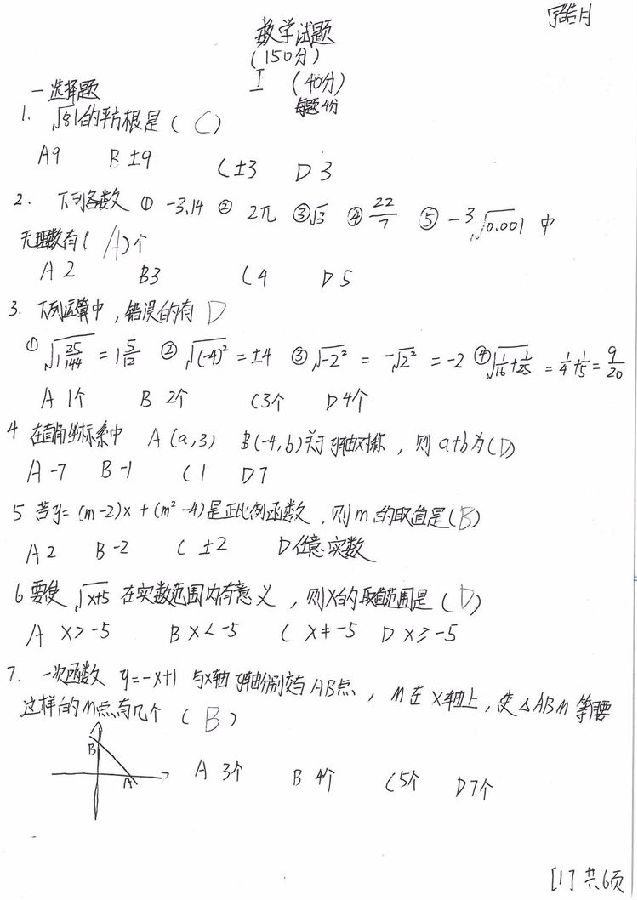 数学试题
(150分)
I (40分)
每题4分
一选择题
1. √81的平方根是 ( C )
A 9 B ±9 C ±3 D 3
2. 下列各数 ① -3.14 ② 2π ③ √3 ④ 22/7 ⑤ -³√0.001 中
无理数有( A )个
A 2 B 3 C 4 D 5
3. 下列运算中，错误的有 D
① √1 25/144 = 1 5/12 ② √(-4)² = ±4 ③ √-2² = -√2² = -2 ④ √1/16+1/25 = 1/4+1/5 = 9/20
A 1个 B 2个 C 3个 D 4个
4 在直角坐标系中 A (a,3) B(-4,b)关于y轴对称，则 a+b为(D)
A -7 B -1 C 1 D 7
5 若y= (m-2)x + (m²-4)是正比例函数，则m的取值是(B)
A 2 B -2 C ±2 D 任意实数
6 要使 √x+5 在实数范围内有意义，则X的取值范围是 ( D )
A X>-5 B X<-5 C X≠-5 D X≥-5
7. 一次函数 y=-x+1 与X轴y轴分别交与AB点，M在X轴上，使△ABM等腰
这样的M点有几个 ( B )
B A
A 3个 B 4个 C 5个 D 7个
[1] 共6页